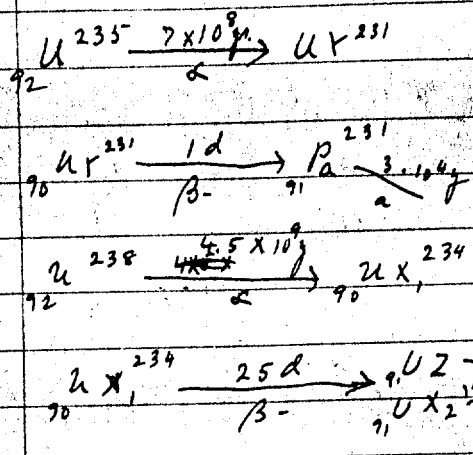 ₉₂U²³⁵ —7×10⁸y. / α→ Ur²³¹
₉₀Ur²³¹ —1d / β-→ ₉₁Pa²³¹ 3·10⁴y / a
₉₂U²³⁸ —4.5×10⁹y / α→ ₉₀UX₁²³⁴
₉₀UX₁²³⁴ —25d / β-→ ₉₁UZ
₉₁UX₂